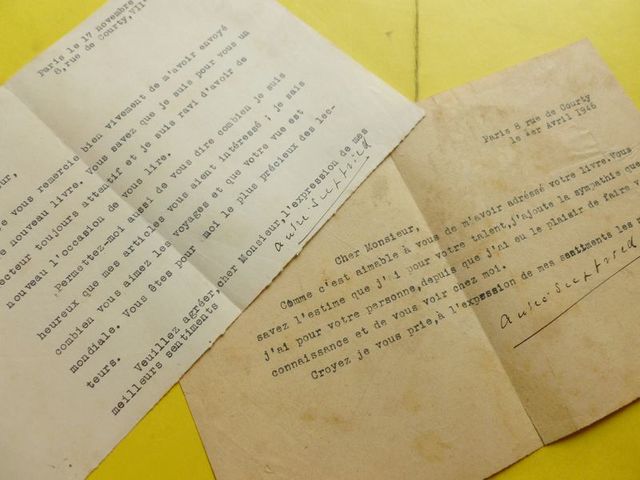 Paris le 17 novembre
8, rue de Courty, VII
ur,
vous remercie bien vivement de m'avoir envoyé
nouveau livre. Vous savez que je suis pour vous un
ecteur toujours attentif et je suis ravi d'avoir de
nouveau l'occasion de vous lire.
Permettez-moi aussi de vous dire combien je suis
heureux que mes articles vous aient intéressé ; je sais
combien vous aimez les voyages et que votre vue est
mondiale. Vous êtes pour moi le plus précieux des lec-
teurs.
Veuillez agréer, cher Monsieur, l'expression de mes
meilleurs sentiments
André Siegfried
Paris 8 rue de Courty
le 1er Avril 1946
Cher Monsieur,
Comme c'est aimable à vous de m'avoir adréssé votre livre. Vous
savez l'estime que j'ai pour votre talent, j'ajoute la sympathie que
j'ai pour votre personne, depuis que j'ai eu le plaisir de faire
connaissance et de vous voir chez moi.
Croyez je vous prie, à l'expression de mes sentiments les
André Siegfried